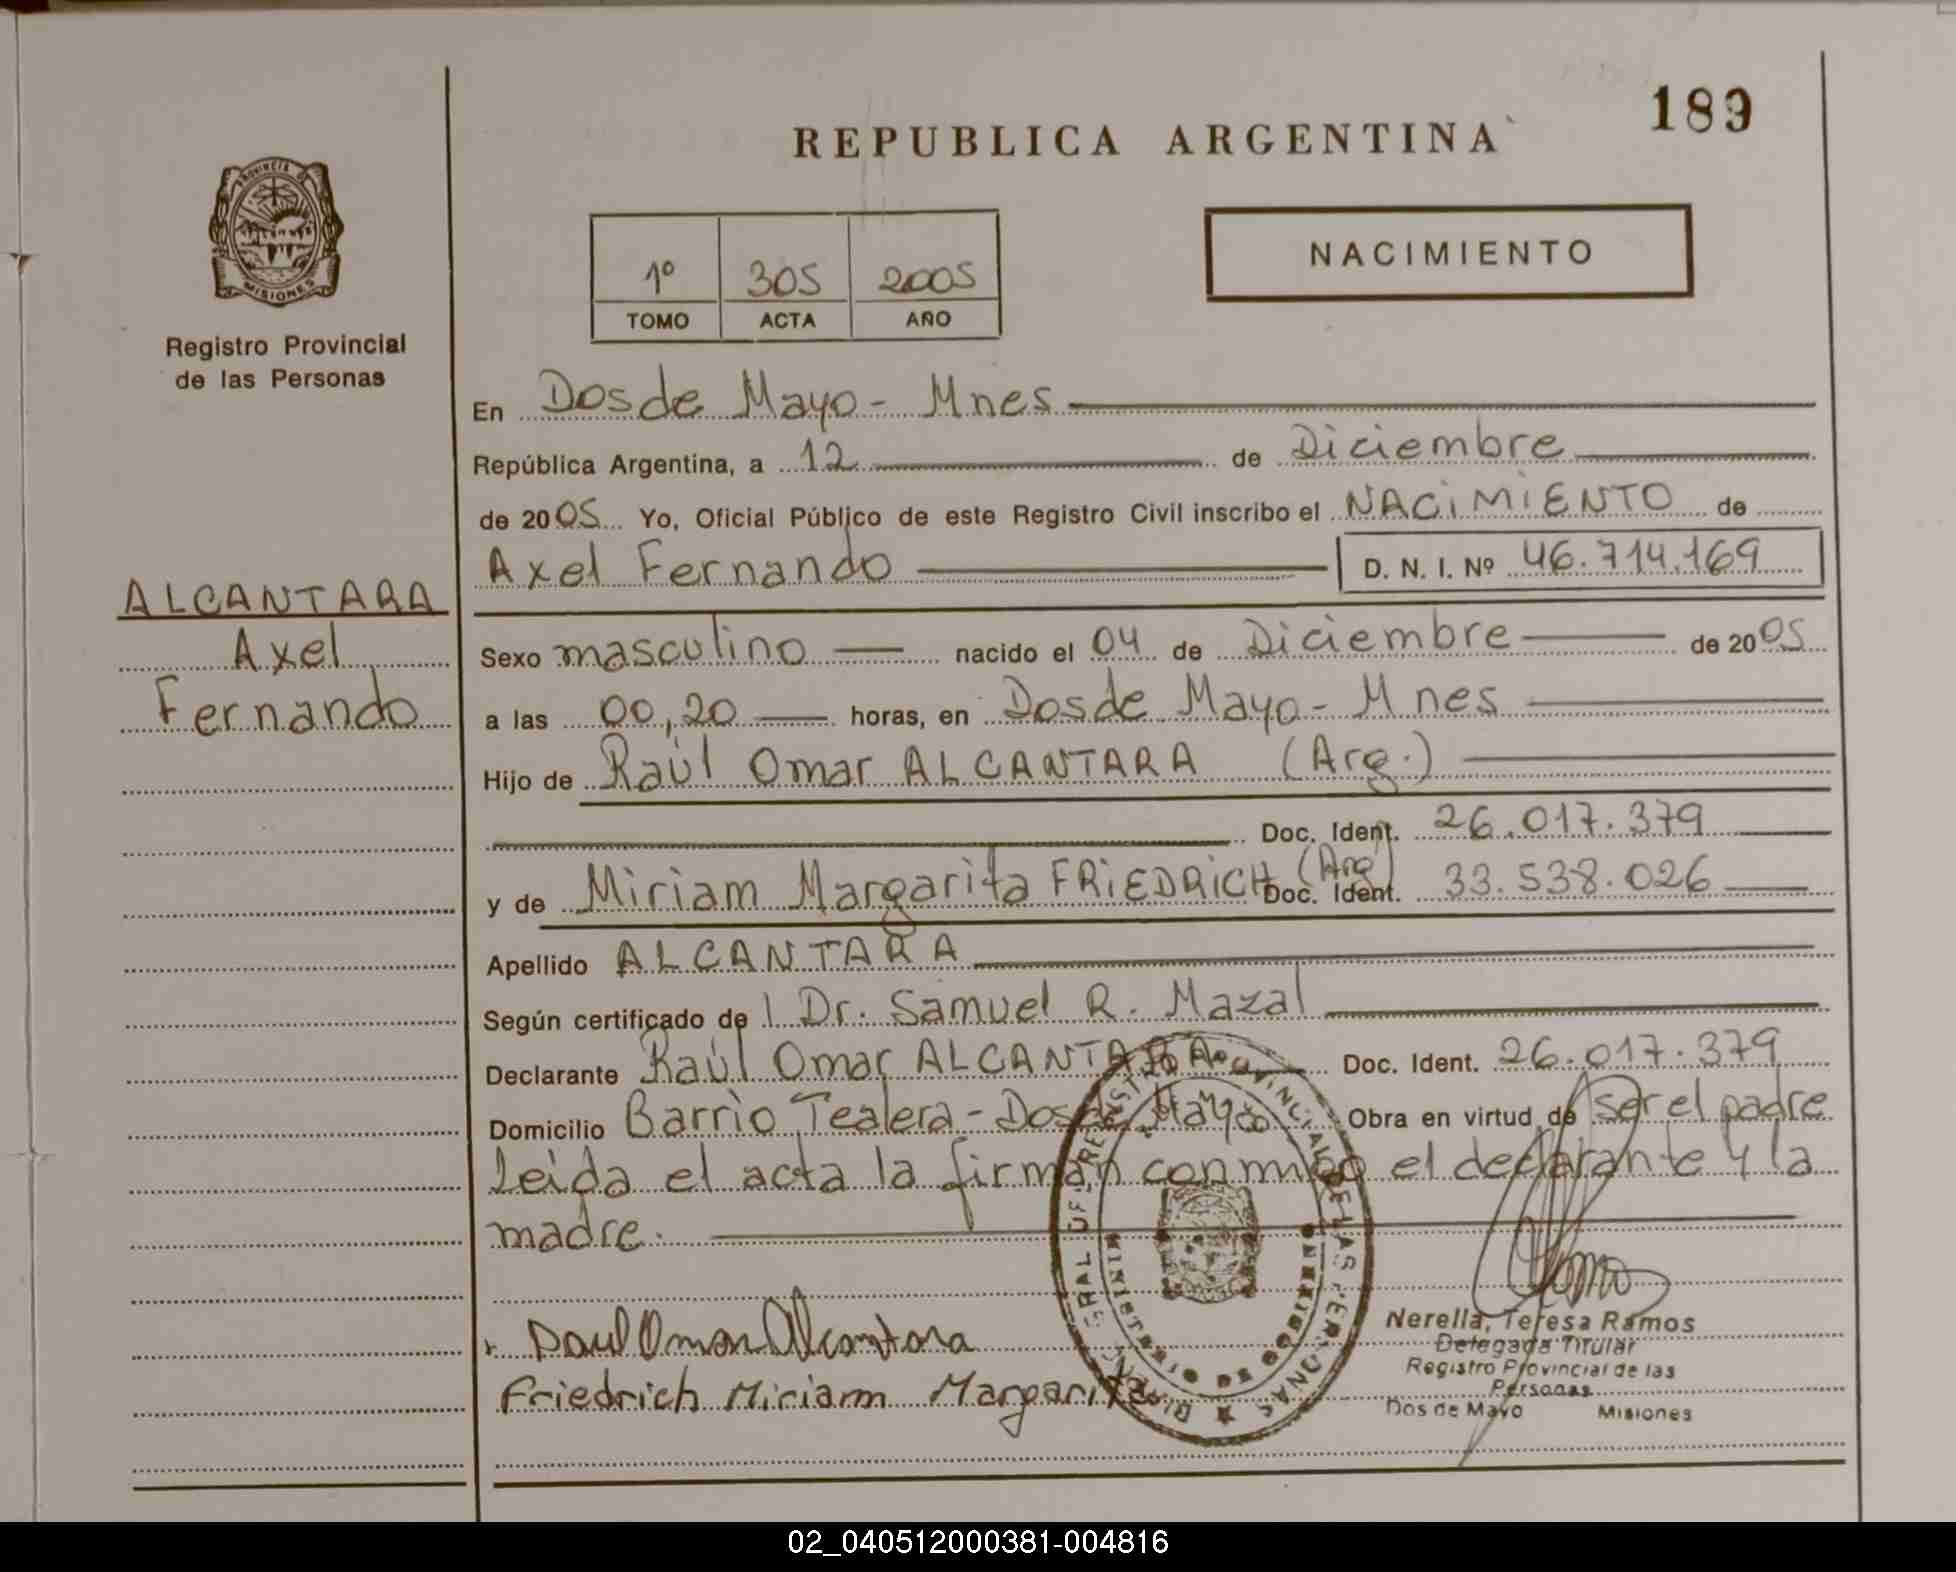 189
REPUBLICA ARGENTINA
PROVINCIA DE
MISIONES
Registro Provincial
de las Personas
NACIMIENTO
1º 305 2005
TOMO ACTA AÑO
En Dos de Mayo - Mnes
República Argentina, a 12 de Diciembre
de 2005 Yo, Oficial Público de este Registro Civil inscribo el NACIMIENTO de
Axel Fernando D. N. I. Nº 46.714.169
ALCANTARA
Axel
Fernando
Sexo masculino nacido el 04 de Diciembre de 2005
a las 00,20 horas, en Dos de Mayo - Mnes
Hijo de Raúl Omar ALCANTARA (Arg.)
Doc. Ident. 26.017.379
y de Miriam Margarita FRIEDRICH (Arg) Doc. Ident. 33.538.026
Apellido ALCANTARA
Según certificado de l Dr. Samuel R. Mazal
Declarante Raúl Omar ALCANTARA Doc. Ident. 26.017.379
Domicilio Barrio Tealera - Dos de Mayo Obra en virtud de ser el padre
Leida el acta la firman conmigo el declarante y la
madre.
Raul Omar Alcantara
Friedrich Miriam Margarita
Nerella, Teresa Ramos
Delegada Titular
Registro Provincial de las
Personas
Dos de Mayo Misiones
02_040512000381-004816